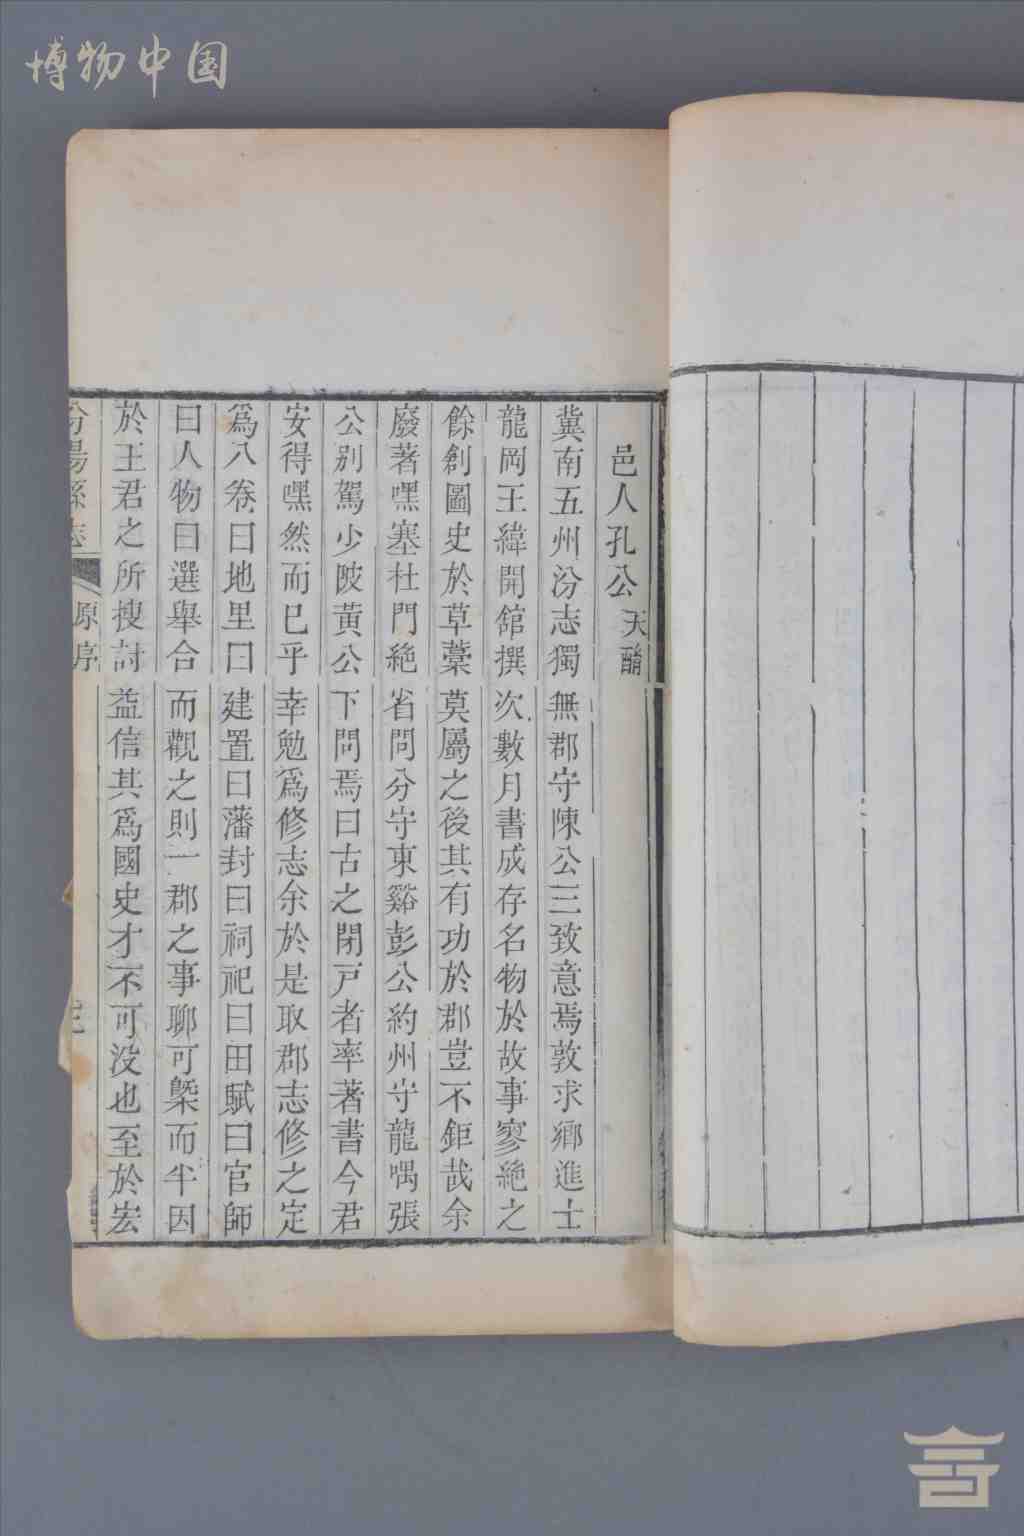 博物中国
邑人孔公天胤
冀南五州汾志獨無郡守陳公三致意焉敦求鄉進士
龍岡王緯開舘撰次數月書成存名物於故事寥絶之
餘創圖史於草藁莫屬之後其有功於郡豈不鉅哉余
廢著嘿塞杜門絶省問分守東谿彭公約州守龍喁張
公别駕少陂黄公下問焉曰古之閉戸者率著書今君
安得嘿然而已乎幸勉爲修志余於是取郡志修之定
爲八卷曰地里曰建置曰藩封曰祠祀曰田賦曰官師
曰人物曰選舉合而觀之則一郡之事聊可槩而半因
於王君之所搜討益信其爲國史才不可没也至於宏
汾陽縣志
原序